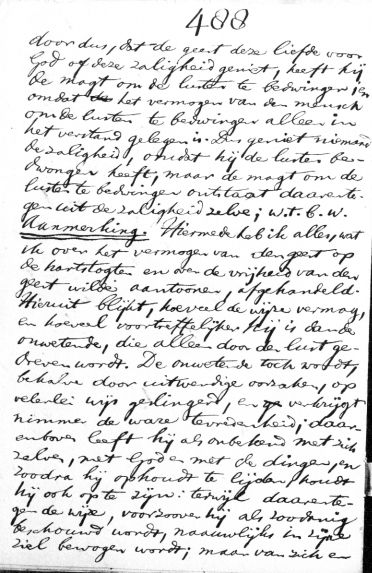 488
door dus, dat de geest deze liefde voor
God of deze zaligheid geniet, heeft hij
de magt om de lusten te bedwingen; en
omdat het vermogen van den mensch
om de lusten te bedwingen alleen in
het verstand gelegen is. Dus geniet niemand
de zaligheid, omdat hij de lusten be-
dwongen heeft, maar de magt om de
lusten te bedwingen ontstaat daarente-
gen uit de zaligheid zelve; w. t. b. w.
Aanmerking. Hiermede heb ik alles, wat
ik over het vermogen van den geest op
de hartstogten en over de vrijheid van den
geest wilde aantoonen, afgehandeld.
Hieruit blijkt, hoeveel de wijze vermag,
en hoeveel voortreffelijker hij is dan de
onwetende, die alleen door den lust ge-
dreven wordt. De onwetende toch wordt,
behalve door uitwendige oorzaken, op
velerlei wijs geslingerd, en verkrijgt
nimmer de ware tevredenheid; daar-
enboven leeft hij als onbekend met zich
zelven, met God en met de dingen, en
zoodra hij ophoudt te lijden, houdt
hij ook op te zijn: terwijl daarente-
gen de wijze, voorzoover hij als zoodanig
beschouwd wordt, naauwelijks in zijne
ziel bewogen wordt; maar van zich en